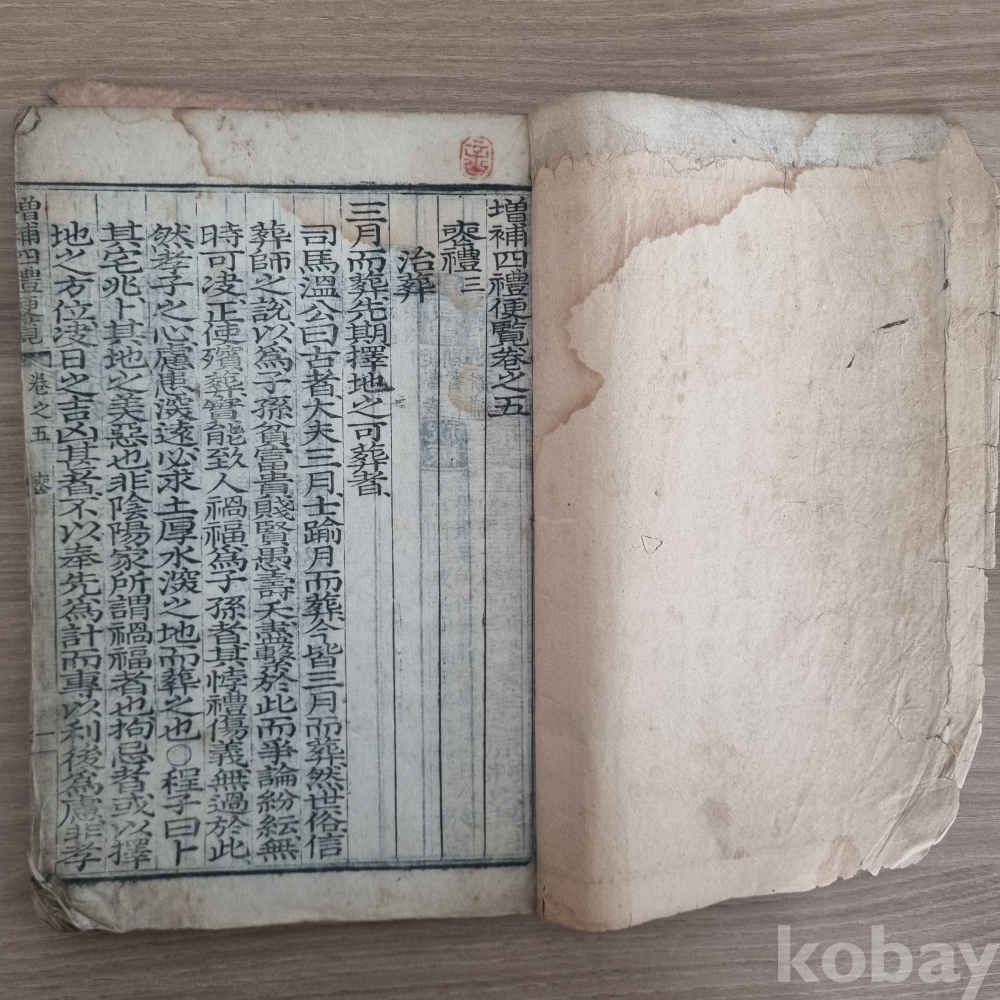 增補四禮便覽卷之五
喪禮三
治葬
三月而葬先期擇地之可葬者
司馬溫公曰古者大夫三月士踰月而葬今皆三月而葬然世俗信
葬師之說以爲子孫貧富貴賤賢愚壽夭盡繫於此而爭論紛紜無
時可决正使殯葬實能致人禍福爲子孫者其悖禮傷義無過於此
然孝子之心慮患深遠必求土厚水深之地而葬之也○程子曰卜
其宅兆卜其地之美惡也非陰陽家所謂禍福者也拘忌者或以擇
地之方位决日之吉凶甚者不以奉先爲計而專以利後爲慮非孝
增補四禮便覽 卷之五 喪 一
kobay